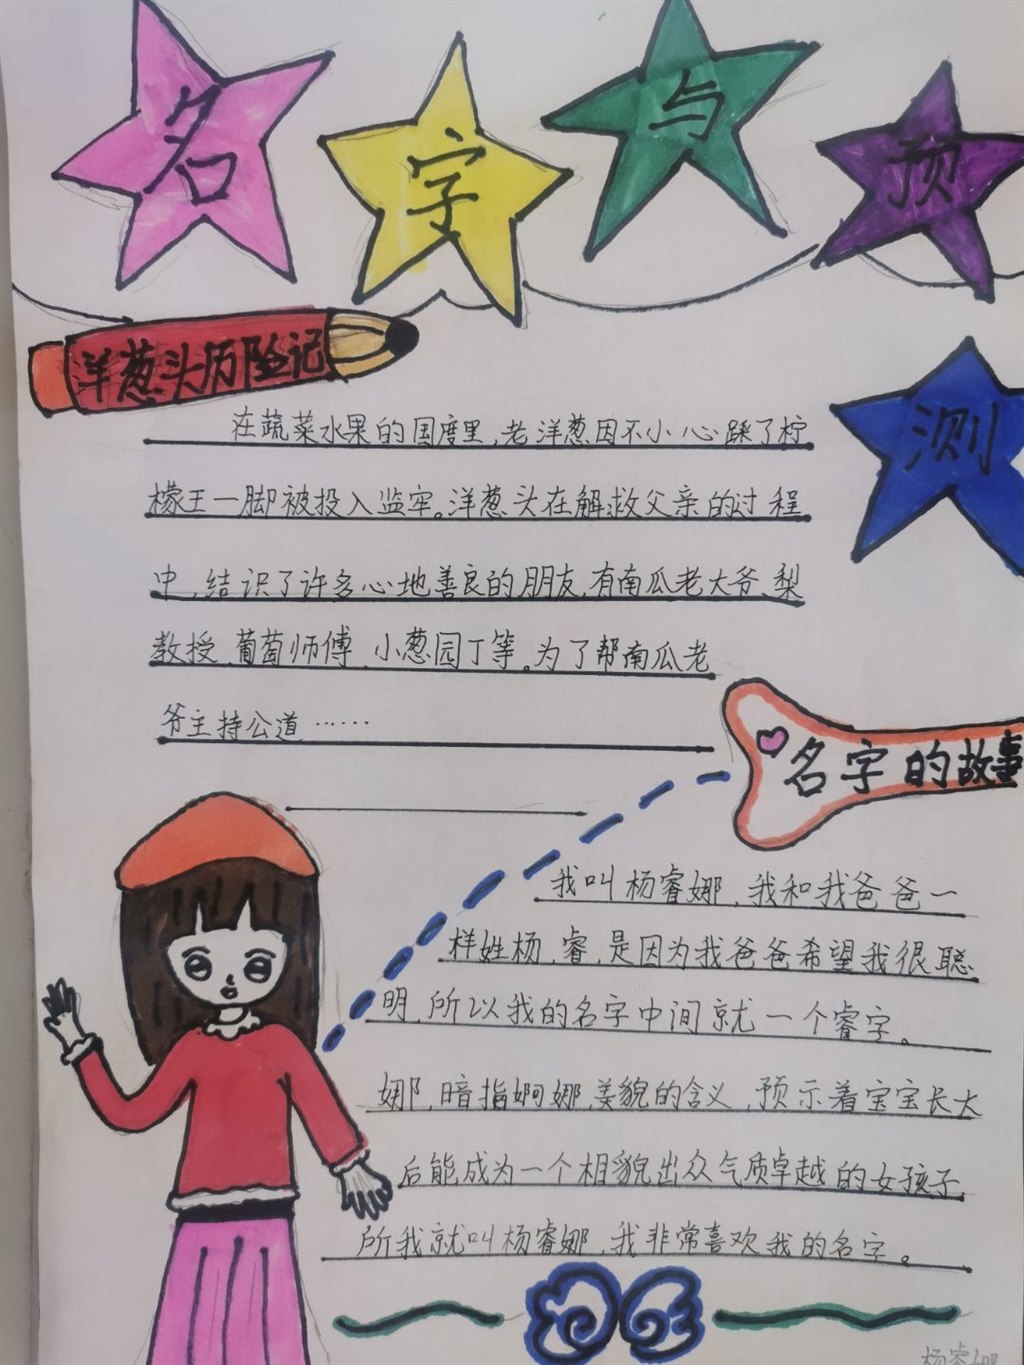 名字与预
测
洋葱头历险记
在蔬菜水果的国度里,老洋葱因不小心踩了柠
檬王一脚被投入监牢。洋葱头在解救父亲的过程
中,结识了许多心地善良的朋友,有南瓜老大爷、梨
教授、葡萄师傅、小葱园丁等。为了帮南瓜老
爷主持公道……
名字的故事
我叫杨睿娜,我和我爸爸一
样姓杨,睿,是因为我爸爸希望我很聪
明,所以我的名字中间就一个睿字。
娜,暗指婀娜,美貌的含义,预示着宝宝长大
后能成为一个相貌出众气质卓越的女孩子,
所我就叫杨睿娜,我非常喜欢我的名字。
杨睿娜